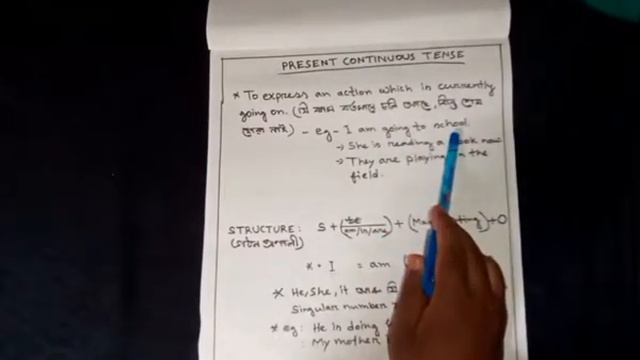 PRESENT CONTINUOUS TENSE
* To express an action which is currently
going on. (যি কাম বৰ্তমানে চলি আছে, কিন্তু শেষ
হোৱা নাই) - eg - I am going to school.
→ She is reading a book now
→ They are playing in the
field.
STRUCTURE: S + (be am/is/are) + ( + O
(গঠন প্ৰণালী)
* • I = am
* He, She, it আৰু
Singular number
* eg: He is doing
: My mother